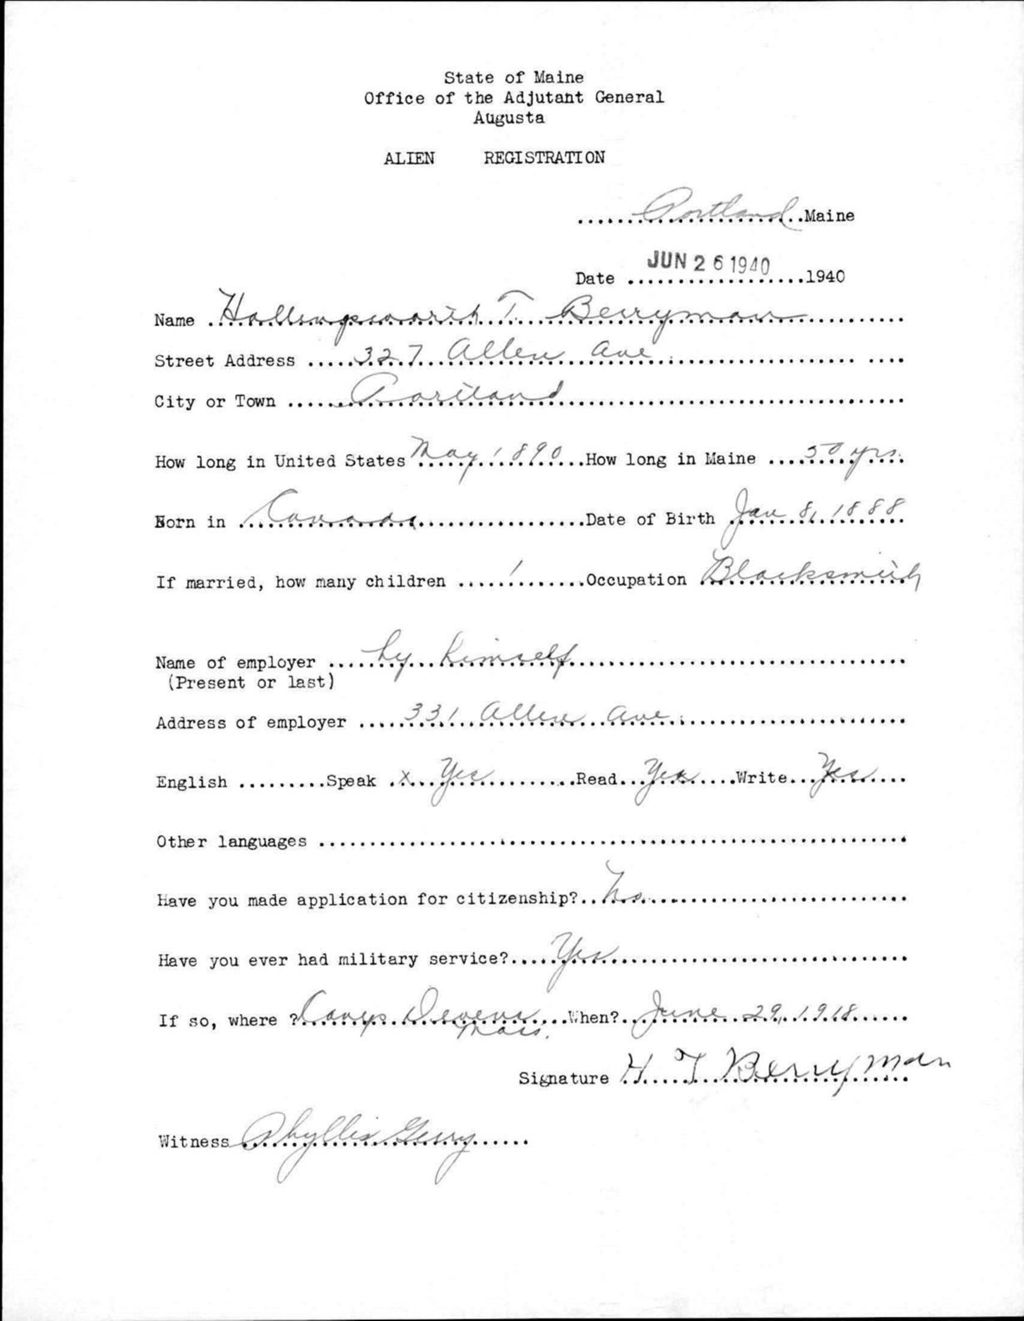 State of Maine
Office of the Adjutant General
Augusta
ALIEN REGISTRATION
Portland Maine
Date JUN 26 1940 1940
Name Hollingsworth T. Berryman
Street Address 327 Allen Ave.
City or Town Portland
How long in United States May 1890 How long in Maine 50 yrs.
Born in Canada Date of Birth Jan 8, 1888
If married, how many children 1 Occupation Blacksmith
Name of employer by himself
(Present or last)
Address of employer 331 Allen Ave.
English Speak x Yes Read Yes Write Yes
Other languages
Have you made application for citizenship? No
Have you ever had military service? Yes
If so, where? Camp Devens Mass. When? June 29, 1918
Signature H T Berryman
Witness Phyllis Gerry